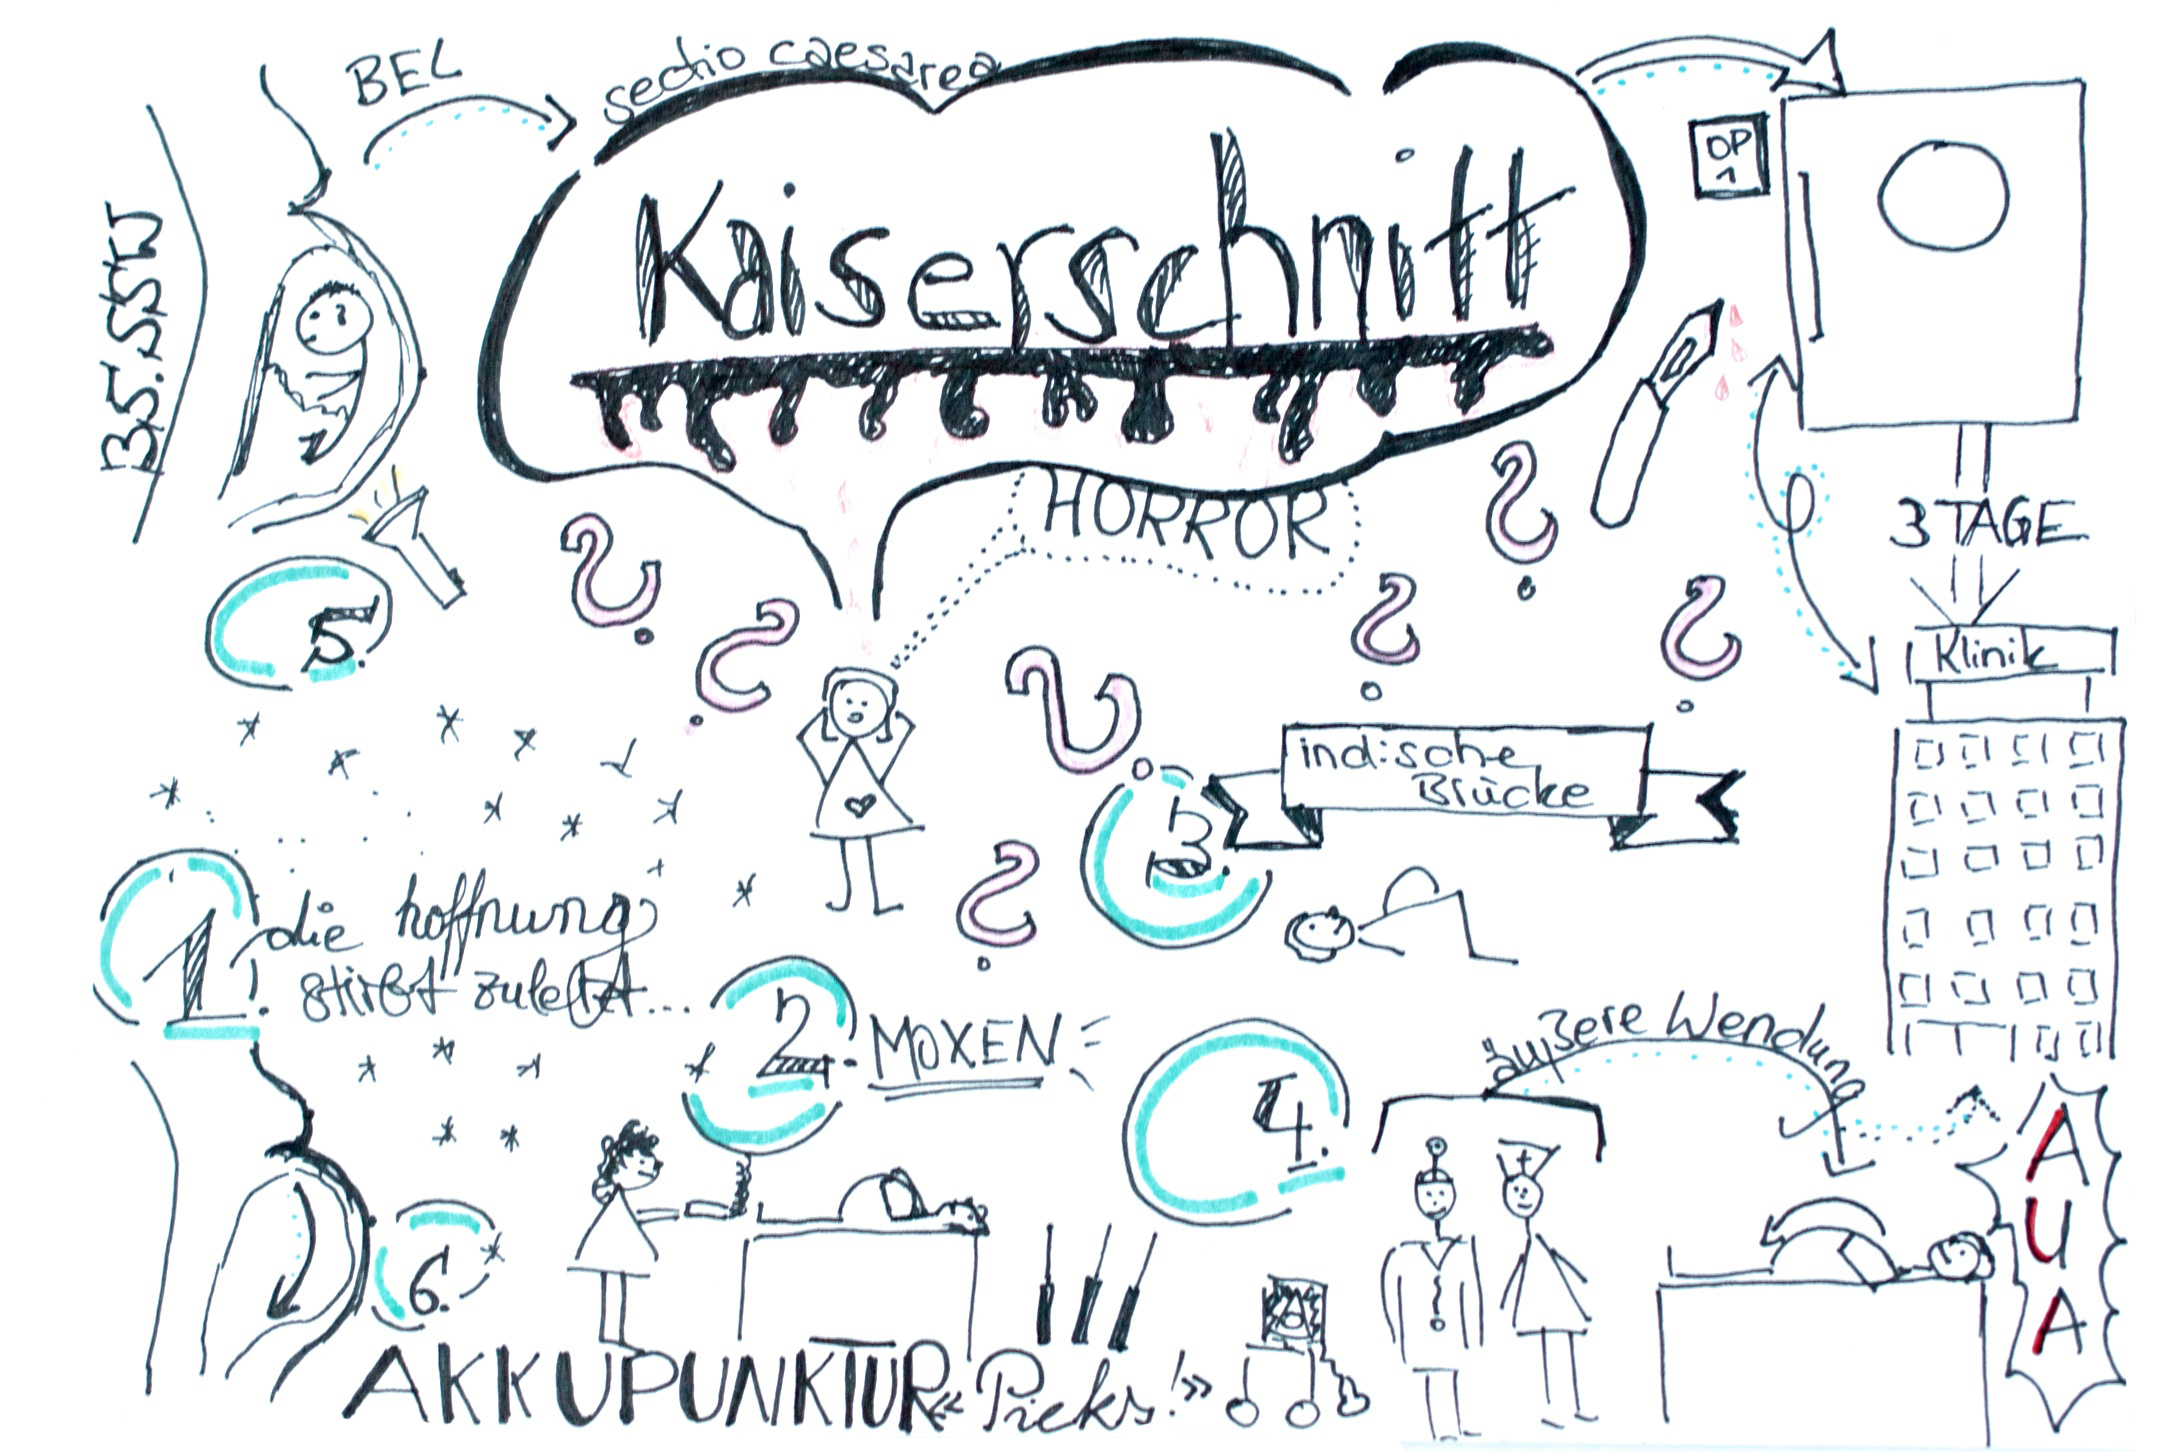 BEL
sectio caesarea
35. SSW
Kaiserschnitt
OP
1
HORROR
3 TAGE
Klinik
5.
3.
indische
Brücke
1.
die hoffnung
stirbt zuletzt...
2.
MOXEN
4.
äußere Wendung
6.
AUA
AKKUPUNKTUR « Pieks! »